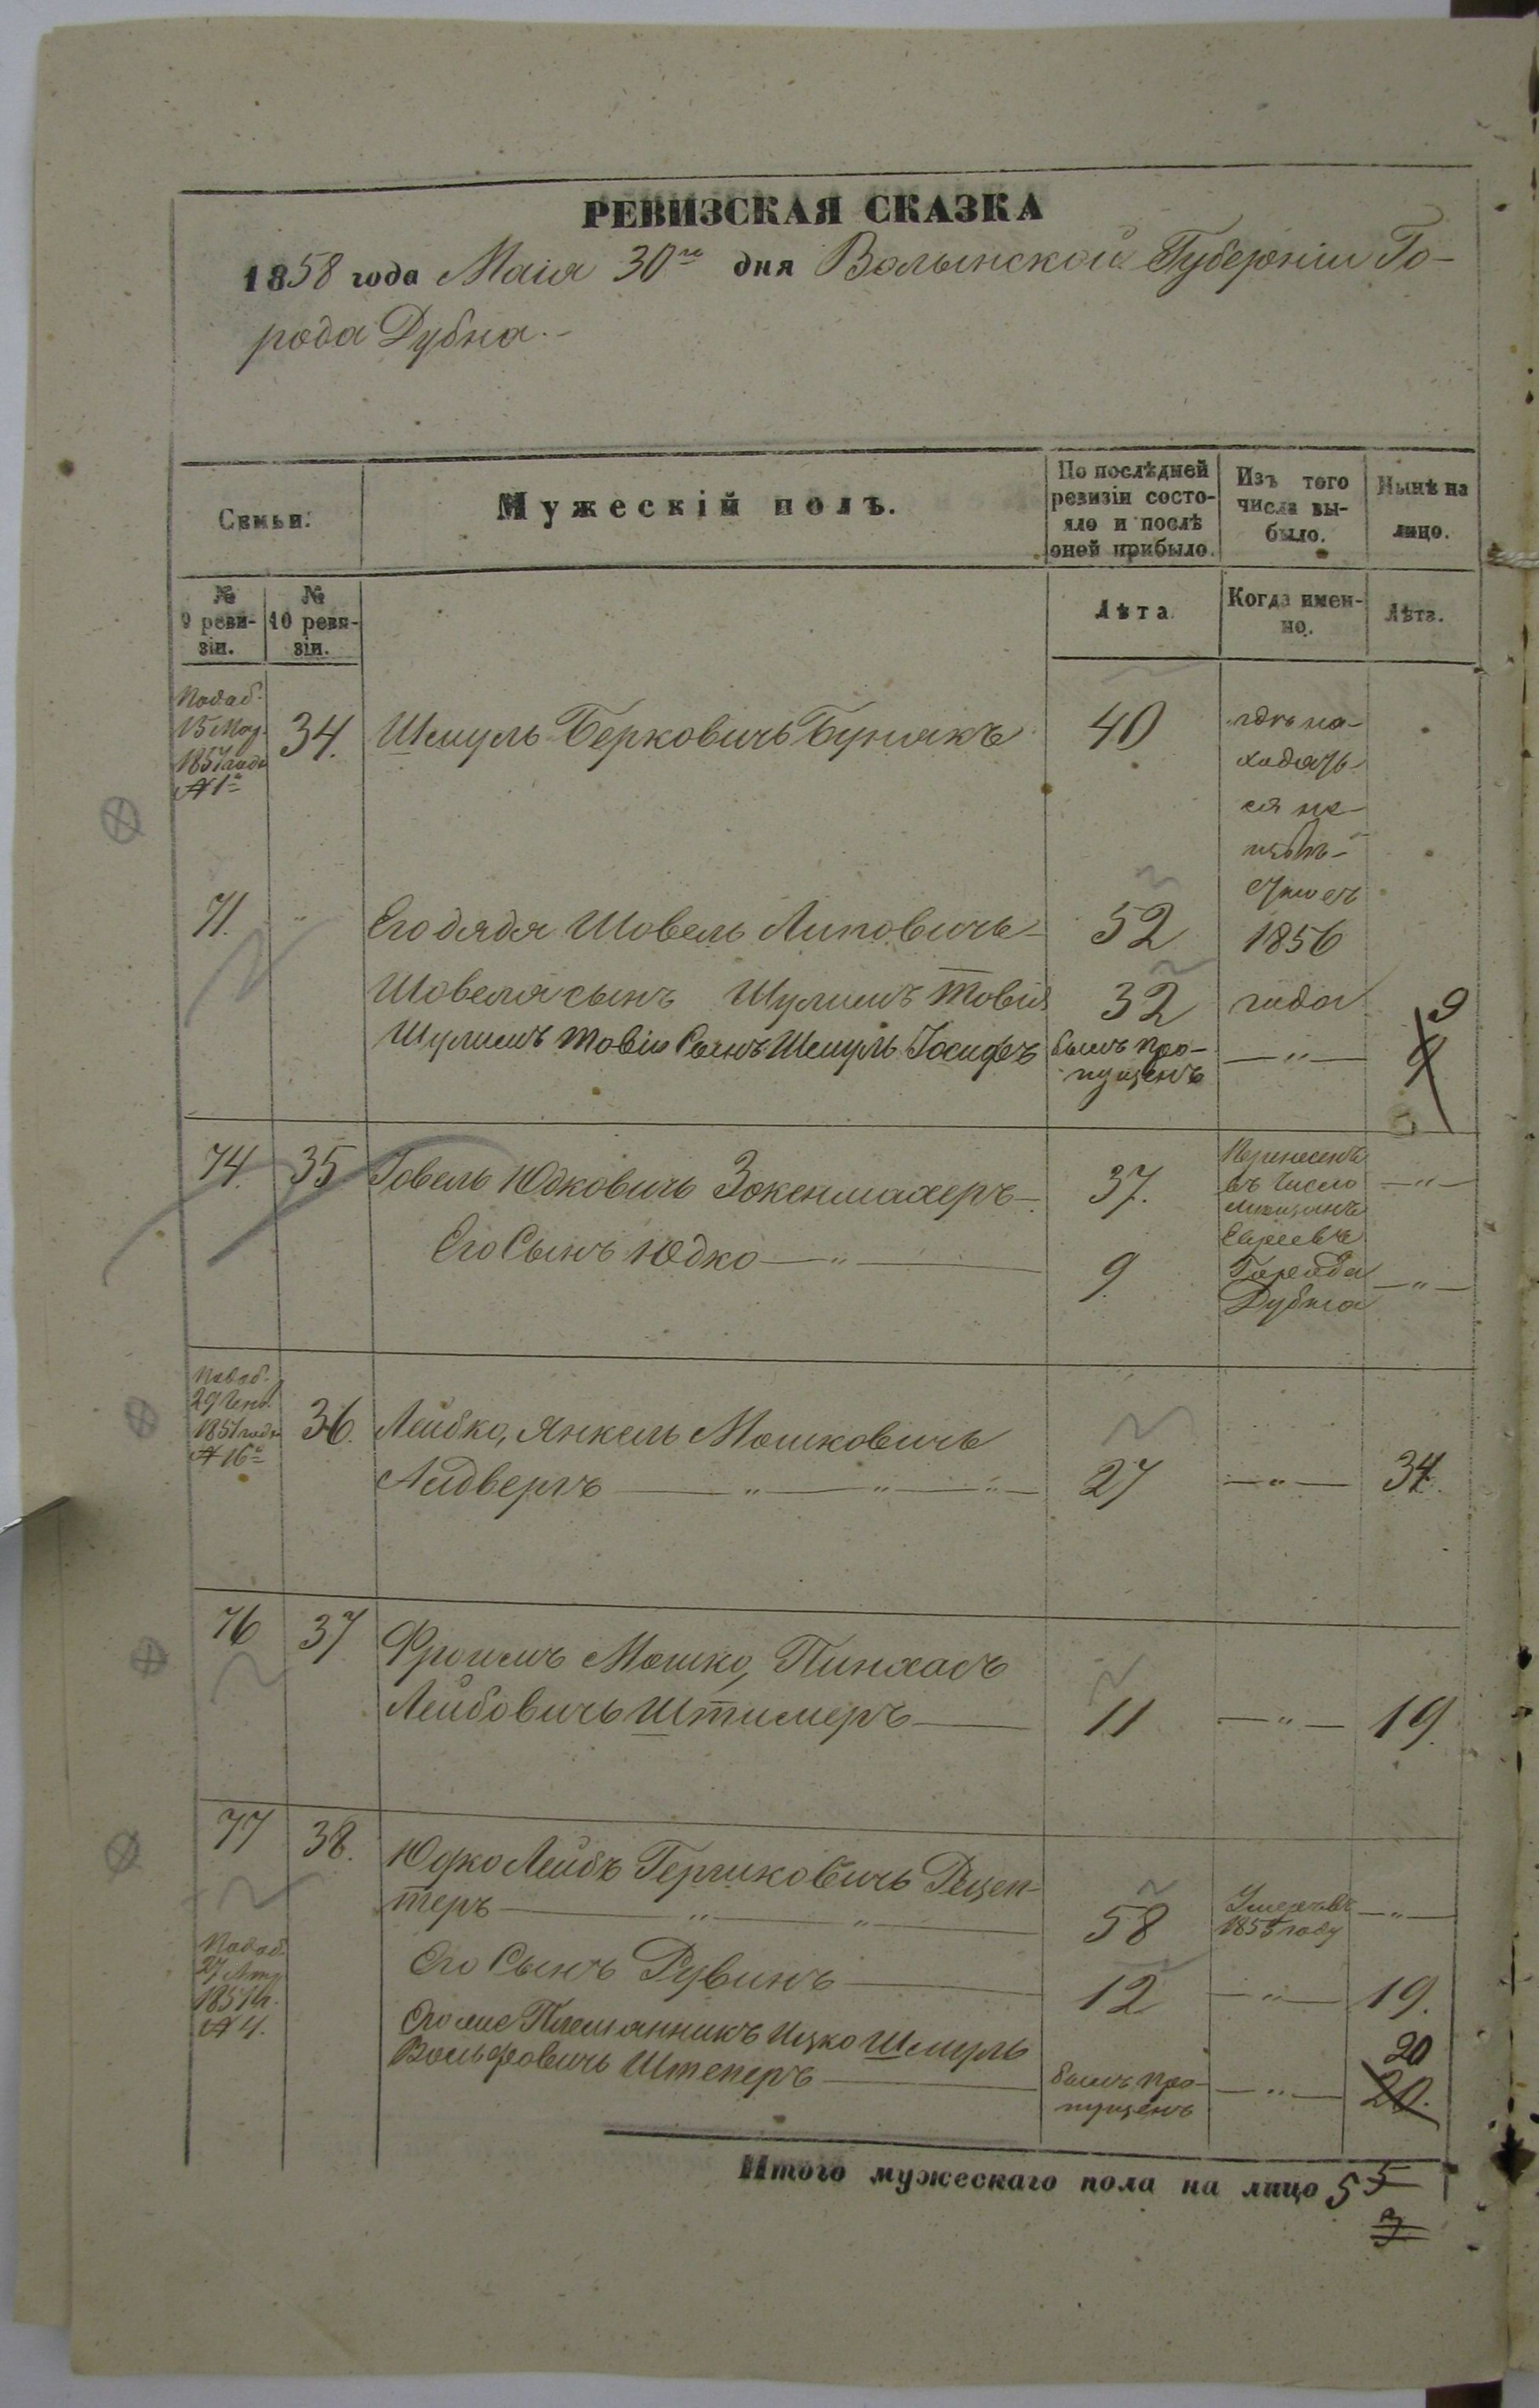 РЕВИЗСКАЯ СКАЗКА
1858 года Маія 30го дня Волынской Губерніи Го-
рода Дубна.-
Семьи.
Мужескій полъ.
По послѣдней
ревизіи состо-
яло и послѣ
оней прибыло.
Изъ того
числа вы-
было.
Нынѣ на
лицо.
№
9 реви-
зіи.
№
10 реви-
зіи.
Лѣта
Когда имен-
но.
Лѣта.
Подаб.
15 Мар.
1851 года
№ 1
34. Шмуль Берковичъ Бунякъ 40
гдѣ на-
ходять-
ся не-
извѣ-
стно съ
1856
года
71. " Его дядя Шовель Липовичъ 52
Шовеля сынъ Шулимъ Товія 32
Шулимъ Товіи Сынъ Шмуль Іосифъ былъ про-
пущенъ — " — 9
9
74. 35 Говель Юдковичъ Зокенмахеръ 37. — " —
Его Сынъ Юдко — " — 9. — " —
Перенесенъ
въ число
мещанъ
Евреевъ
Города
Дубна
1851 года
№ 16
36. Лейбко, Янкель Мошковичъ
Лидвергъ — " — " — " — 27 — " — 34.
76 37 Фроимъ Мошко, Пинхасъ
Лейбовичъ Штимеръ — 11 — " — 19.
77 38. Юдко Лейбъ Гершковичъ Рецеп-
теръ — " — " — 58 Умеръ въ
1855 году — " —
27 Апр.
1851 г.
№ 4.
Его Сынъ Рувинъ — 12 — " — 19.
Его же Племянникъ Ицко Шмуль
Вольфовичъ Штеперъ — былъ про-
пущенъ — " — 20
20.
Итого мужескаго пола на лицо 5 5
3